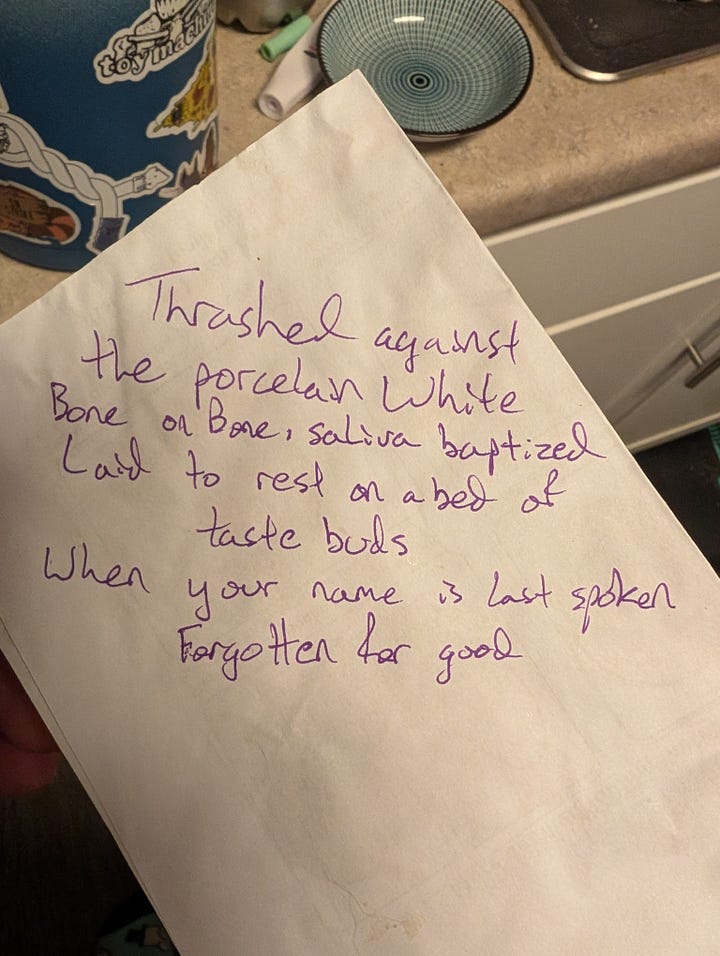 toy machine
Thrashed against
the porcelain White
Bone on Bone, saliva baptized
Laid to rest on a bed of
taste buds
When your name is last spoken
Forgotten for good